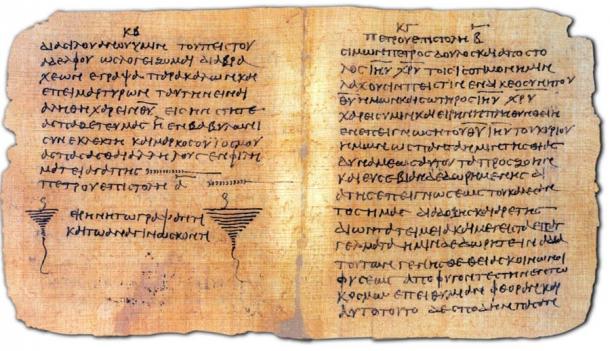 ΚΒ
ΔΙΑ ϹΙΛΟΥΑΝΟΥ ΥΜΙΝ ΤΟΥ ΠΙϹΤΟΥ
ΑΔΕΛΦΟΥ ΩϹ ΛΟΓΕΙΖΟΜΑΙ ΔΙΑ ΒΡΑ
ΧΕΩΝ ΕΓΡΑΨΑ ΠΑΡΑΚΑΛΩΝ ΚΑΙ
ΕΠΕΙΜΑΡΤΥΡΩΝ ΤΑΥΤΗΝ ΕΙΝΑΙ
ΑΛΗΘΗ ΧΑΡΕΙΝ ΘΥ ΕΙϹ ΗΝ ϹΤΗΤΕ
ΑϹΠΑΖΕΤΕ ΥΜΑϹ Η ΕΝ ΒΑΒΥΛΩΝΙ
ϹΥΝΕΚΛΕΚΤΗ ΚΑΙ ΜΑΡΚΟϹ Ο ΥΙΟϹ ΜΟΥ
ΑϹΠΑϹΑϹΘΕ ΑΛΛΗΛΟΥϹ ΕΝ ΦΙΛΗ
ΜΑΤΕΙ ΑΓΑΠΗϹ
ΠΕΤΡΟΥ ΕΠΙϹΤΟΛΗ Α
ΕΙΡΗΝΗ ΤΩ ΓΡΑΨΑΝΤΙ
ΚΑΙ ΤΩ ΑΝΑΓΙΝΩϹΚΟΝΤΙ
ΚΓ
ΠΕΤΡΟΥ ΕΠΙϹΤΟΛΗ Β
ϹΙΜΩΝ ΠΕΤΡΟϹ ΔΟΥΛΟϹ ΚΑΙ ΑΠΟϹΤΟ
ΛΟϹ ΙΗΥ ΧΡΥ ΤΟΙϹ ΙϹΟΤΙΜΟΝ ΗΜΙΝ
ΛΑΧΟΥϹΙΝ ΠΙϹΤΙΝ ΕΝ ΔΙΚΕΟϹΥΝΗ ΤΟΥ
ΘΥ ΗΜΩΝ ΚΑΙ ϹΩΤΗΡΟϹ ΙΗΥ ΧΡΥ
ΧΑΡΙϹ ΥΜΙΝ ΚΑΙ ΕΙΡΗΝΗ ΠΛΗΘΥΝΘΕΙΗ
ΕΝ ΕΠΕΙΓΝΩϹΙ ΤΟΥ ΘΥ ΙΗΥ ΤΟΥ ΚΥΡΙΟΥ
ΗΜΩΝ ΩϹ ΠΑΝΤΑ ΗΜΙΝ ΤΗϹ ΘΕΙΑϹ
ΔΥΝΑΜΕΩϹ ΑΥΤΟΥ ΤΑ ΠΡΟϹ ΖΩΗΝ
ΚΑΙ ΕΥϹΕΒΙΑΝ ΔΕΔΩΡΗΜΕΝΗϹ ΔΙ
Α ΤΗϹ ΕΠΕΙΓΝΩϹΕΩϹ ΤΟΥ ΚΑΛΕϹΑΝ
ΤΟϹ ΗΜΑϹ ΔΙΑ ΔΟΞΗϹ ΚΑΙ ΑΡΕΤΗϹ
ΔΙ ΩΝ ΤΑ ΤΕΙΜΕΙΑ ΚΑΙ ΜΕΓΙϹΤΑ ΕΠΑΓ
ΓΕΛΜΑΤΑ ΗΜΙΝ ΔΕΔΩΡΗΤΑΙ ΙΝΑ ΔΙΑ
ΤΟΥΤΩΝ ΓΕΝΗϹΘΕ ΘΕΙΑϹ ΚΟΙΝΩΝΟΙ
ΦΥϹΕΩϹ ΑΠΟΦΥΓΟΝΤΕϹ ΤΗΝ ΕΝ ΤΩ
ΚΟϹΜΩ ΕΠΕΙΘΥΜΙΑΝ ΦΘΟΡΑϹ ΚΑΙ
ΑΥΤΟ ΤΟΥΤΟ ΔΕ ϹΠΟΥΔΗΝ ΠΑϹΑΝ